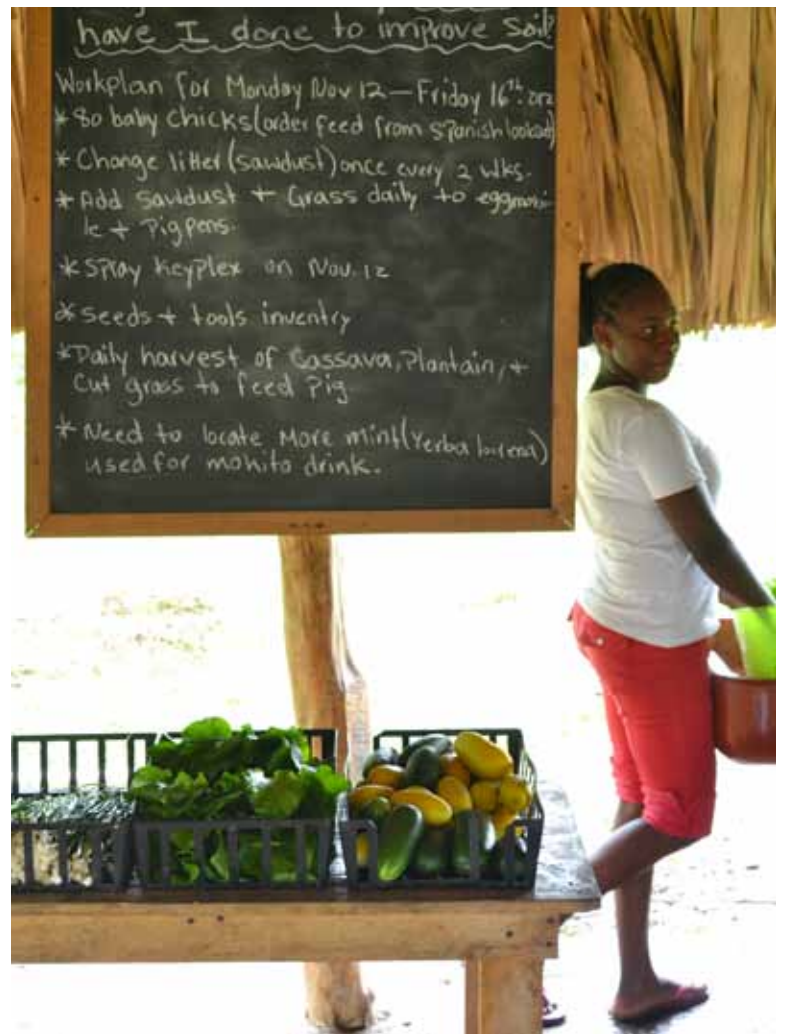 have I done to improve soil?
Workplan for Monday Nov 12 – Friday 16th.
* 80 baby chicks (order feed from Spanish lookout)
* Change litter (sawdust) once every 2 wks.
* Add sawdust + Grass daily to eggmobi
le + Pig pens.
* Spray Keyplex on Nov. 12
* Seeds + tools inventry
* Daily harvest of Cassava, Plantain, +
Cut grass to feed Pig
* Need to locate More mint (Yerba
used for mohito drink.